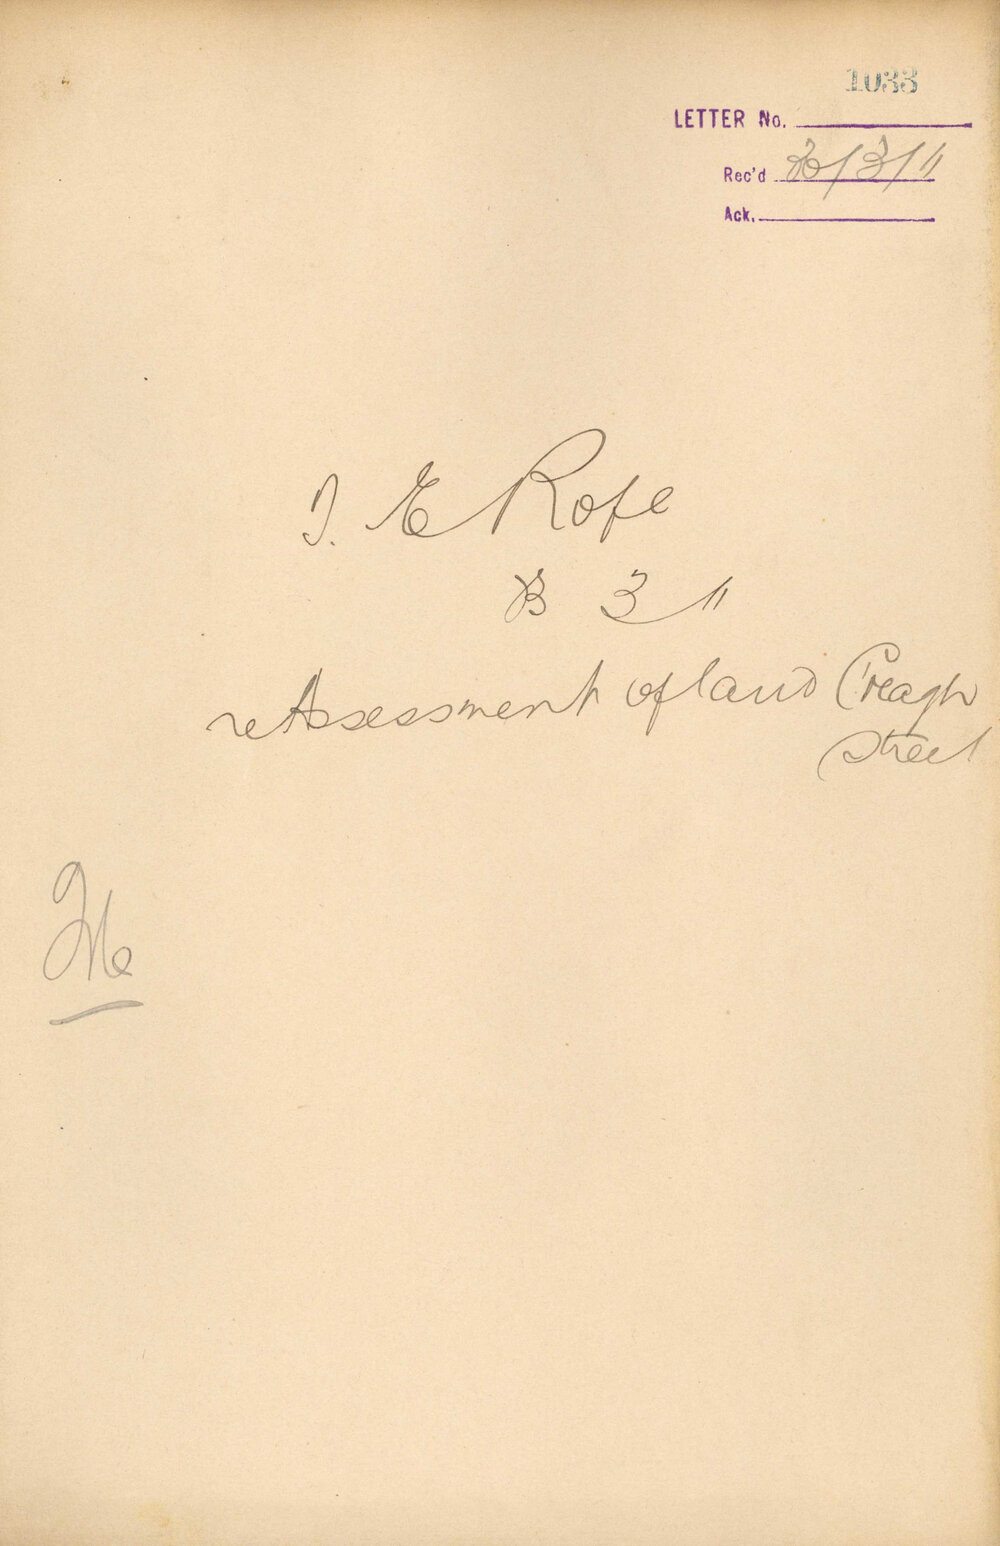 1033
LETTER No.
Rec'd /3/11
Ack.
T. E Rofe
3 11
re Assessment of land Creagh
Street
File